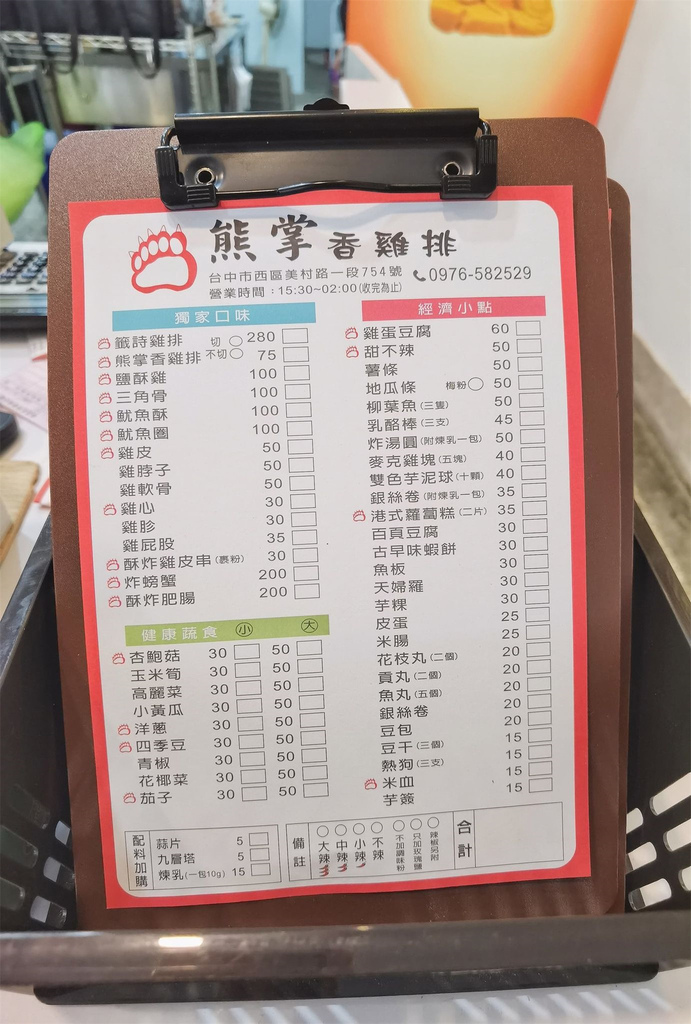 熊掌香雞排
台中市西區美村路一段754號 0976-582529
營業時間：15:30~02:00(收完為止)
獨家口味
籤詩雞排 切 280
熊掌香雞排 不切 75
鹽酥雞 100
三角骨 100
魷魚酥 100
魷魚圈 100
雞皮 50
雞脖子 50
雞軟骨 50
雞心 30
雞胗 30
雞屁股 35
酥炸雞皮串(裹粉) 30
炸螃蟹 200
酥炸肥腸 200
健康蔬食 小 大
杏鮑菇 30 50
玉米筍 30 50
高麗菜 30 50
小黃瓜 30 50
洋蔥 30 50
四季豆 30 50
青椒 30 50
花椰菜 30 50
茄子 30 50
經濟小點
雞蛋豆腐 60
甜不辣 50
薯條 50
地瓜條 梅粉 50
柳葉魚(三隻) 50
乳酪棒(三支) 45
炸湯圓(附煉乳一包) 50
麥克雞塊(五塊) 40
雙色芋泥球(十顆) 40
銀絲卷(附煉乳一包) 35
港式蘿蔔糕(二片) 35
百頁豆腐 30
古早味蝦餅 30
魚板 30
天婦羅 30
芋粿 30
皮蛋 25
米腸 25
花枝丸(二個) 20
貢丸(二個) 20
魚丸(五個) 20
銀絲卷 20
豆包 20
豆干(三個) 15
熱狗(三支) 15
米血 15
芋簽 15
配料加購
蒜片 5
九層塔 5
煉乳(一包10g) 15
備註
大辣
中辣
小辣
不辣
不加調味粉
只加玫瑰鹽
辣椒另附
合計